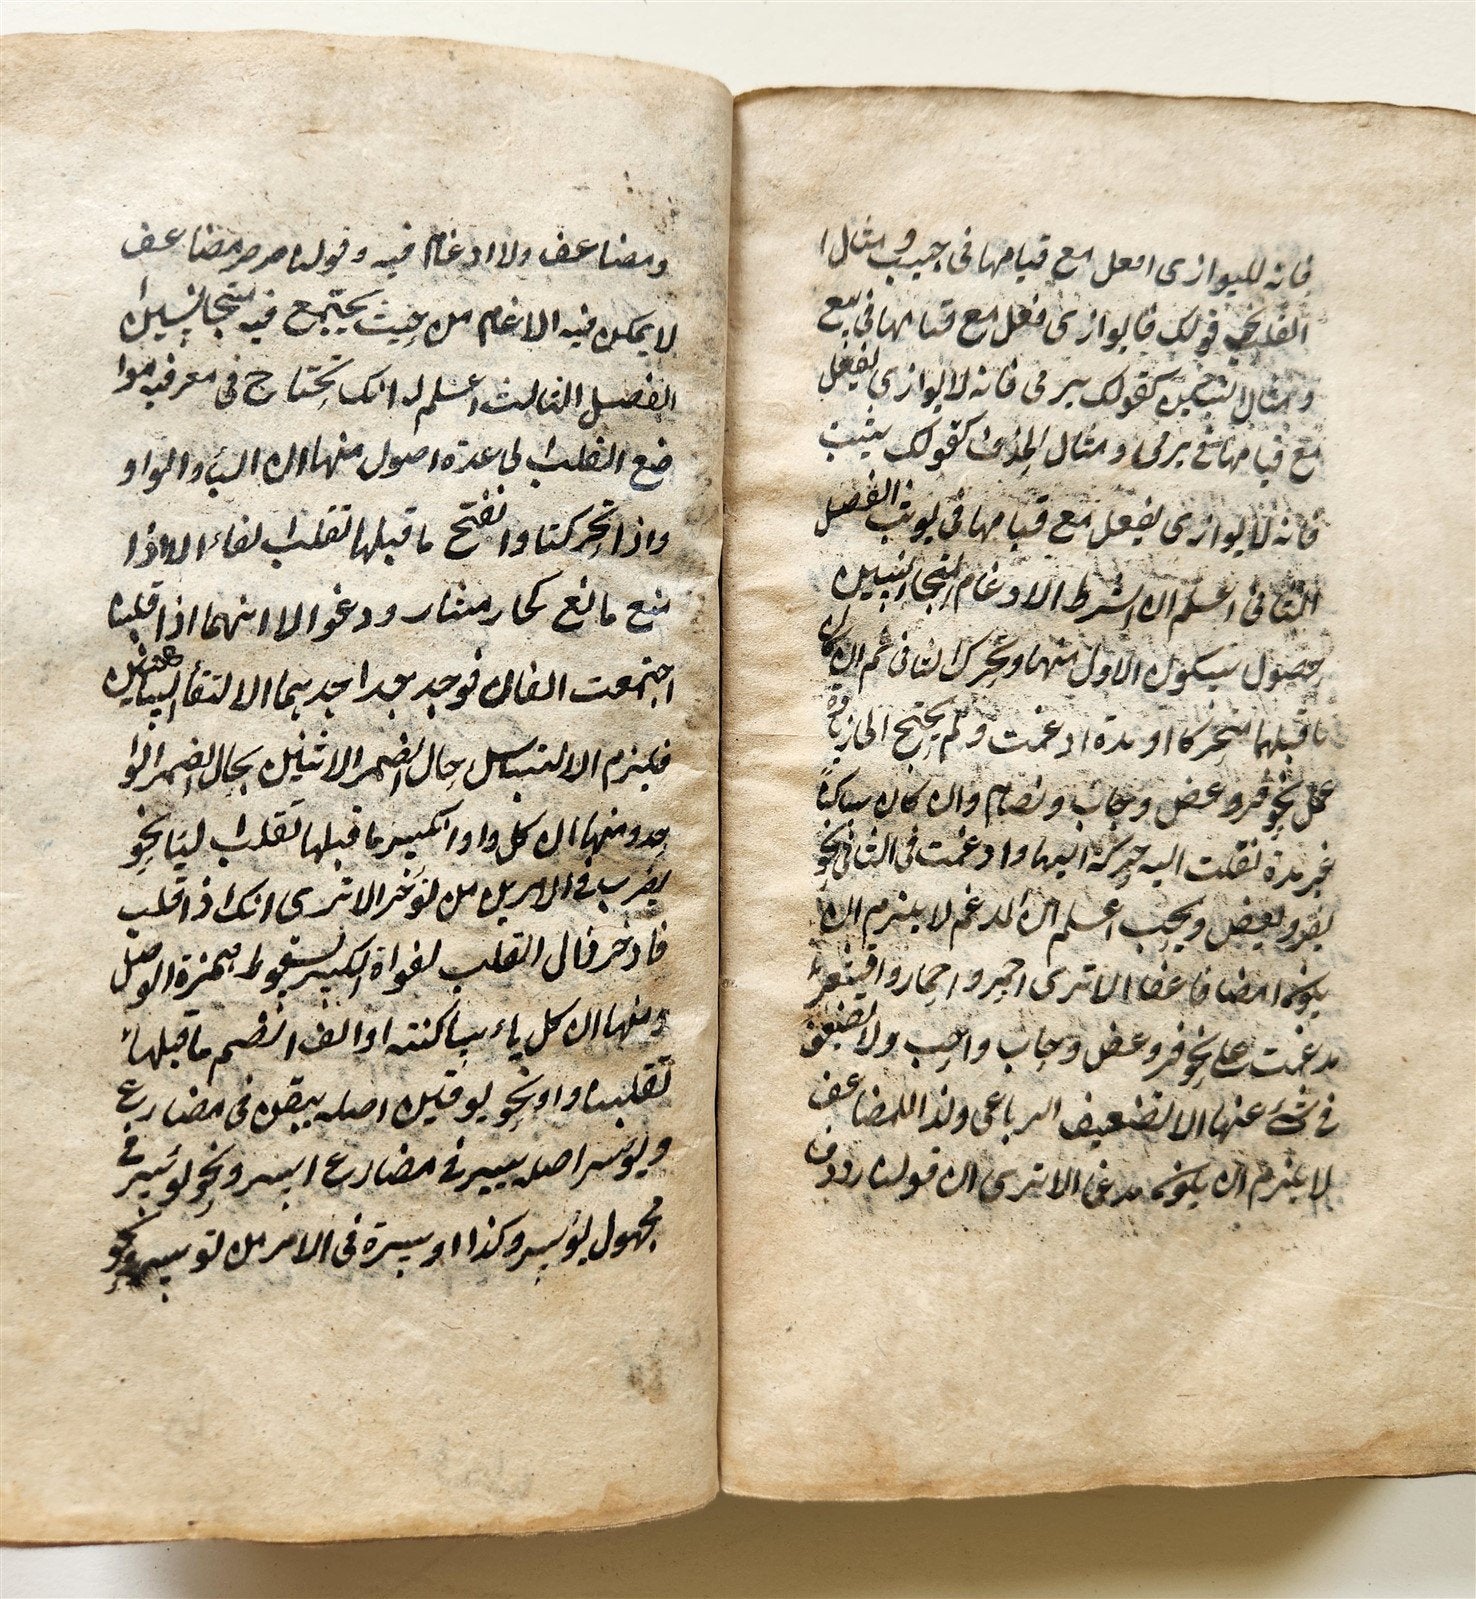 فانه لليوازى افعل مع قيامها فى جيب ومثال ا
القلب قولك فا يوازى فعل مع قيامها فى بيع
ومثال التسكين كقولك يرمى فانه لا يوازى يفعل
مع قيامها فى يرمى ومثال الحذف كقولك يثب
فانه لا يوازى يفعل مع قيامها فى يوثب الفصل
الثانى اعلم ان الشرط الادغام المتجانسين
حصول سكون الاول منهما وتحرك الثانى ثم ان كان
ما قبلها متحركا او مدة ادغمت ولم يحتج الى زيادة
عمل نحو فر وعض وحاب وتصام وان كان ساكنا
غير مدة نقلت اليه حركة اليها وادغمت فى الثانى نحو
يفر ويعض ويجب اعلم ان المدغم لا يلزم ان
يكون مضاعفا الا ترى احمر واحمار واقشعر
مدغمت على نحو فر وعض وحاب واحب ولا تضعيف
فى شئ عنها الا لتضعيف الرباعى ولذا المضاعف
لا يلزم ان يكون مدغما الا ترى ان قولنا ردد
ومضاعف ولا ادغام فيه وقولنا صرصر مضاعف
لا يمكن فيه الاغام من حيث يجتمع فيه متجانسان
الفصل الثالث اعلم انك تحتاج فى معرفة موا
ضع القلب لى عدة اصول منها ان الياء والواو
واذا تحركتا وانفتح ما قبلها تقلب لفاء الا اذا
منع مانع كما رمتا ر ودعوا لا انهما اذا قلبنا
اجتمعت الفان فوجد بعد احديهما الا لتقاء الساكنين
فيلزم الالتباس حال الضمير الاثنين بحال الضمير الوا
حد ومنها ان كل واو انكسر ما قبلها تقلب ليا نحو
يضرب فى الامر بل من توخر الا ترى انك اذ اقلب
فادخر فال القلب لفواة الكسر لسقوط همزة الوصل
ومنها ان كل ياء ساكنته او الف انضم ما قبلها
تقلبنا واو نحو يوقن اصله ييقن فى مضارع
ويوسر اصله ييسر فى مضارع ايسر ونحو لوئسر فى
مجهول يوسر وكذا اوسيرة فى الامر من توسير ونحو